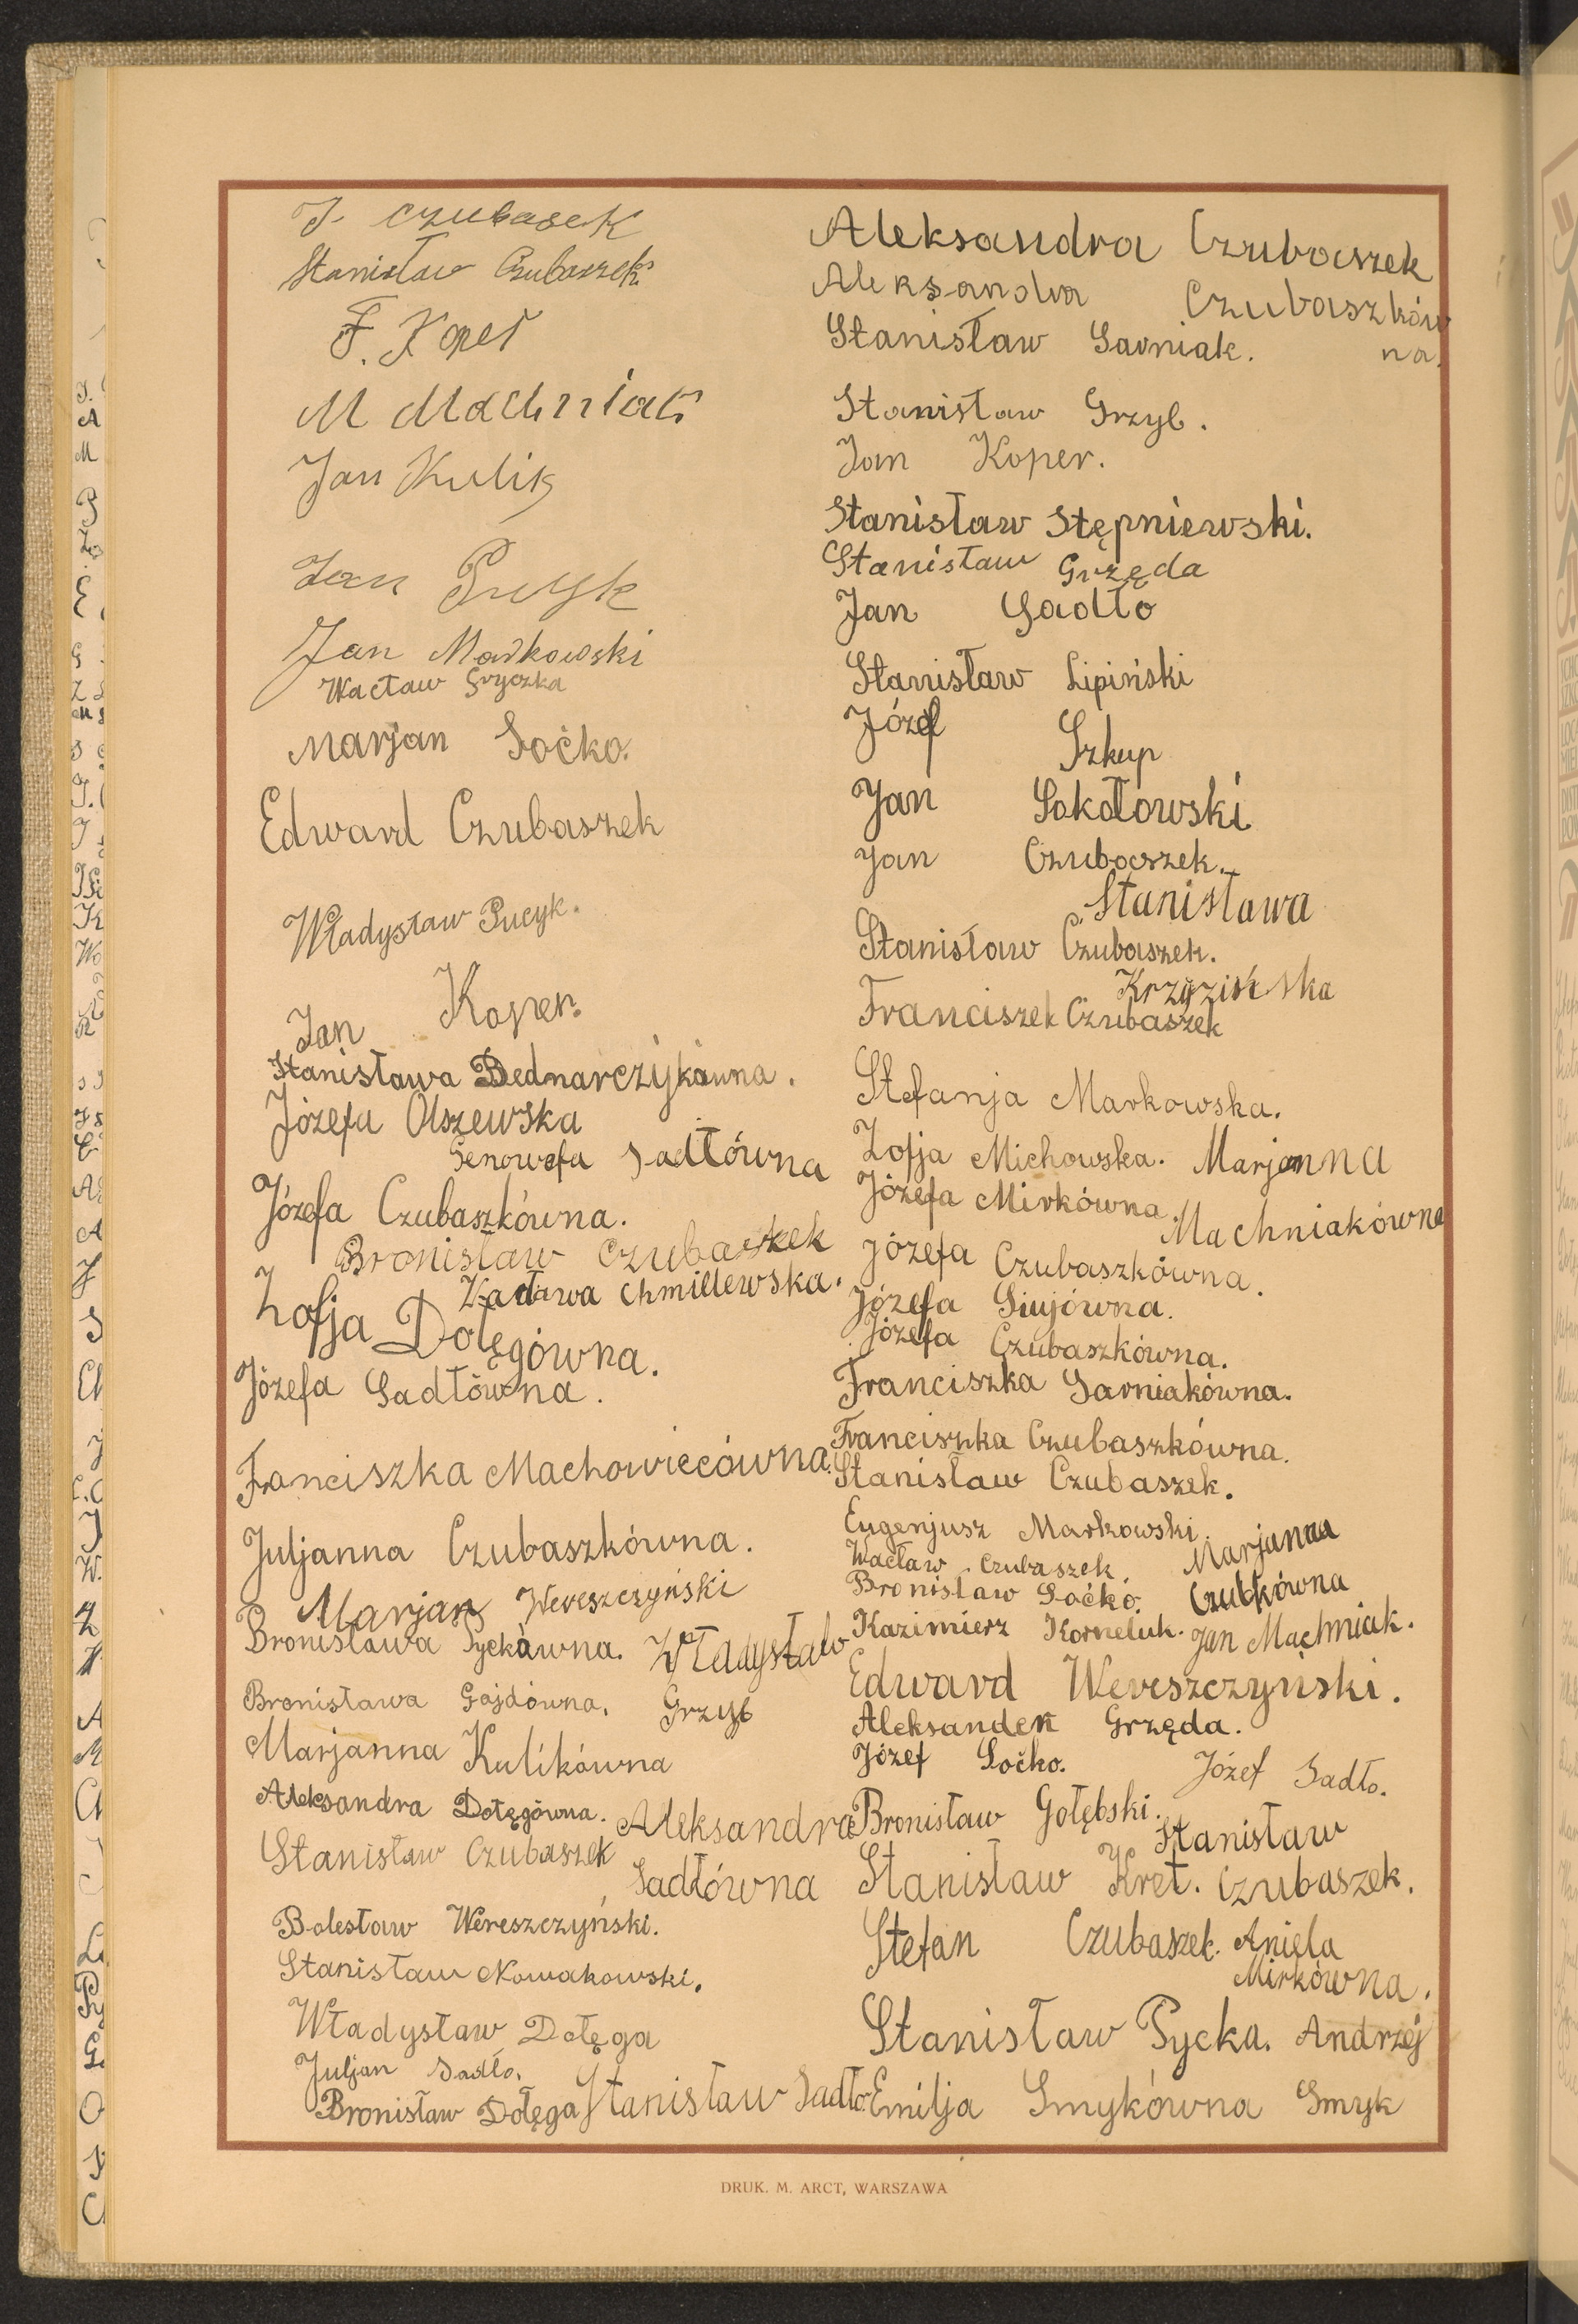 J. Czubasek
Stanisław Czubaszek
F. Koper
M Machniak
Jan Kulik
Jan Pucyk
Jan Markowski
Wacław Gryczka
Marjan Soćko.
Edward Czubaszek
Władysław Pucyk.
Jan Koper.
Stanisława Bednarczykówna.
Józefa Olszewska
Genowefa Sadłówna
Józefa Czubaszkówna.
Bronisław Czubaszek
Wacława Chmillewska.
Zofja Dołęgówna.
Józefa Sadłówna.
Franciszka Machowiecówna.
Juljanna Czubaszkówna.
Marjan Wereszczyński
Bronisława Pyckówna.
Władysław
Grzyb
Bronisława Gajdówna.
Marjanna Kulikówna
Aleksandra Dołęgówna.
Aleksandra
Sadłówna
Stanisław Czubaszek
Bolesław Wereszczyński.
Stanisław Nowakowski.
Władysław Dołęga
Juljan Sadło.
Bronisław Dołęga Stanisław Sadło
Aleksandra Czubaszek
Aleksandra Czubaszków
na.
Stanisław Sawniak.
Stanisław Grzyb.
Jan Koper.
Stanisław Stępniewski.
Stanisław Grzęda
Jan Sadło
Stanisław Lipiński
Józef Szkup
Jan Sokołowski
Jan Czubaszek.
Stanisława
Stanisław Czubaszek.
Krzyzińska
Franciszek Czubaszek
Stefanja Markowska.
Zofja Michowska. Marjanna
Józefa Mirkówna. Machniakówna
Józefa Czubaszkówna.
Józefa Siujówna.
Józefa Czubaszkówna.
Franciszka Sawniakówna.
Franciszka Czubaszkówna.
Stanisław Czubaszek.
Eugenjusz Markowski.
Marjanna
Wacław Czubaszek.
Bronisław Soćko. Czubkówna
Kazimierz Korneluk. Jan Machniak.
Edward Wereszczyński.
Aleksander Grzęda.
Józef Soćko. Józef Sadło.
Bronisław Gołębski.
Stanisław
Stanisław Kret. Czubaszek.
Stefan Czubaszek. Aniela
Mirkówna.
Stanisław Pycka. Andrzej
Emilja Smykówna Smyk
DRUK. M. ARCT, WARSZAWA